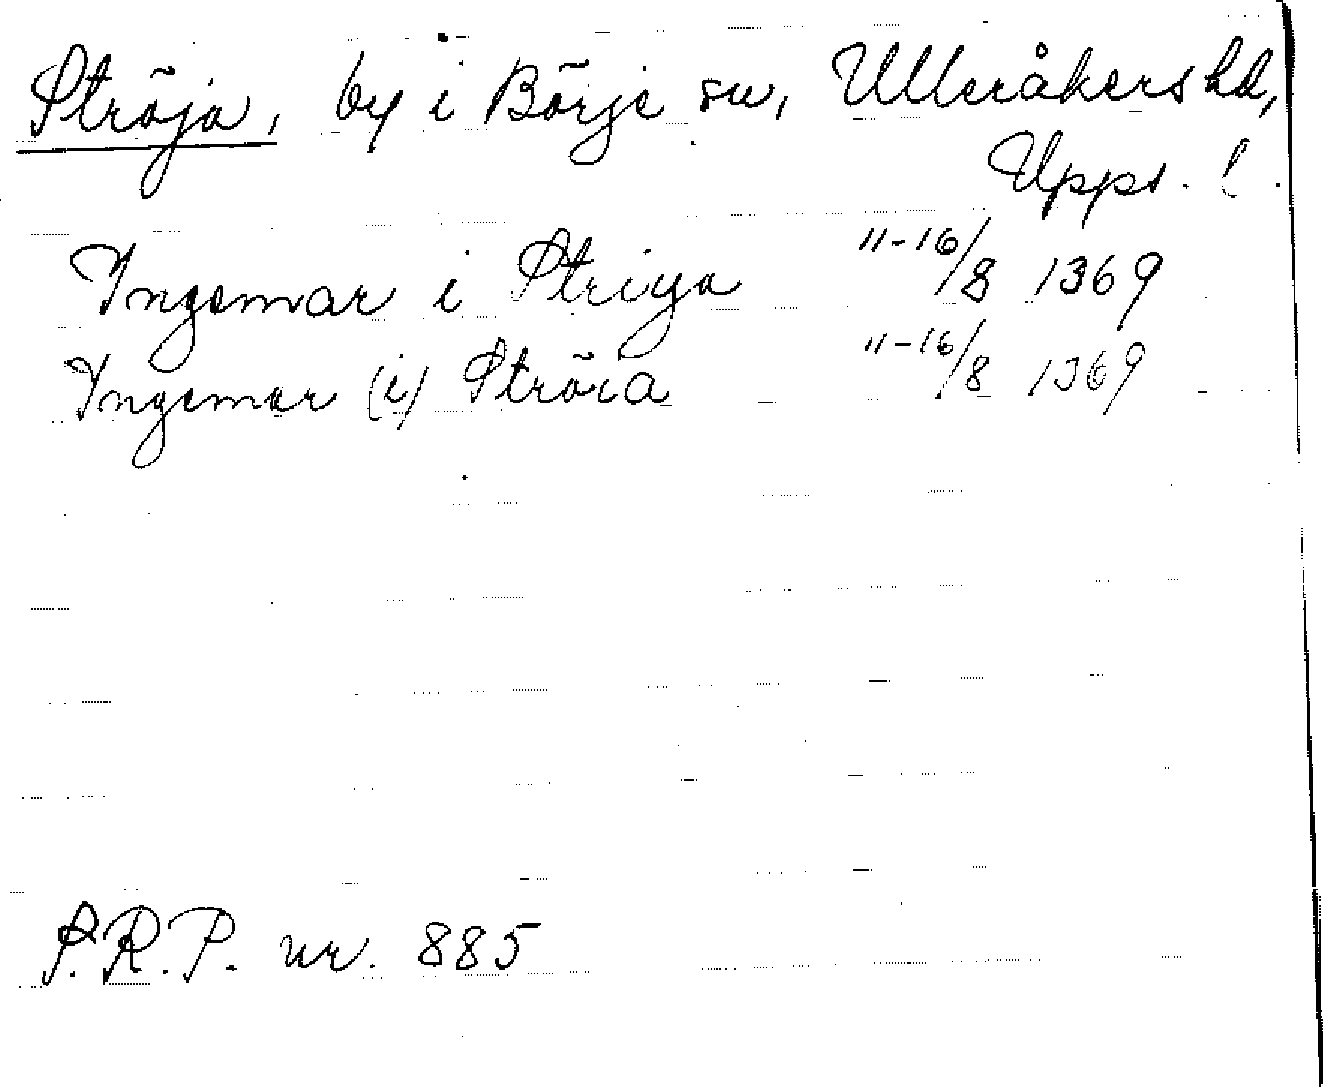 Ströja, by i Börje sn, Ulleråkers hd,
Upps. l.
Ingemar i Striya 11-16/8 1369
Ingemar (i) Ströia 11-16/8 1369
S.R.P. nr. 885